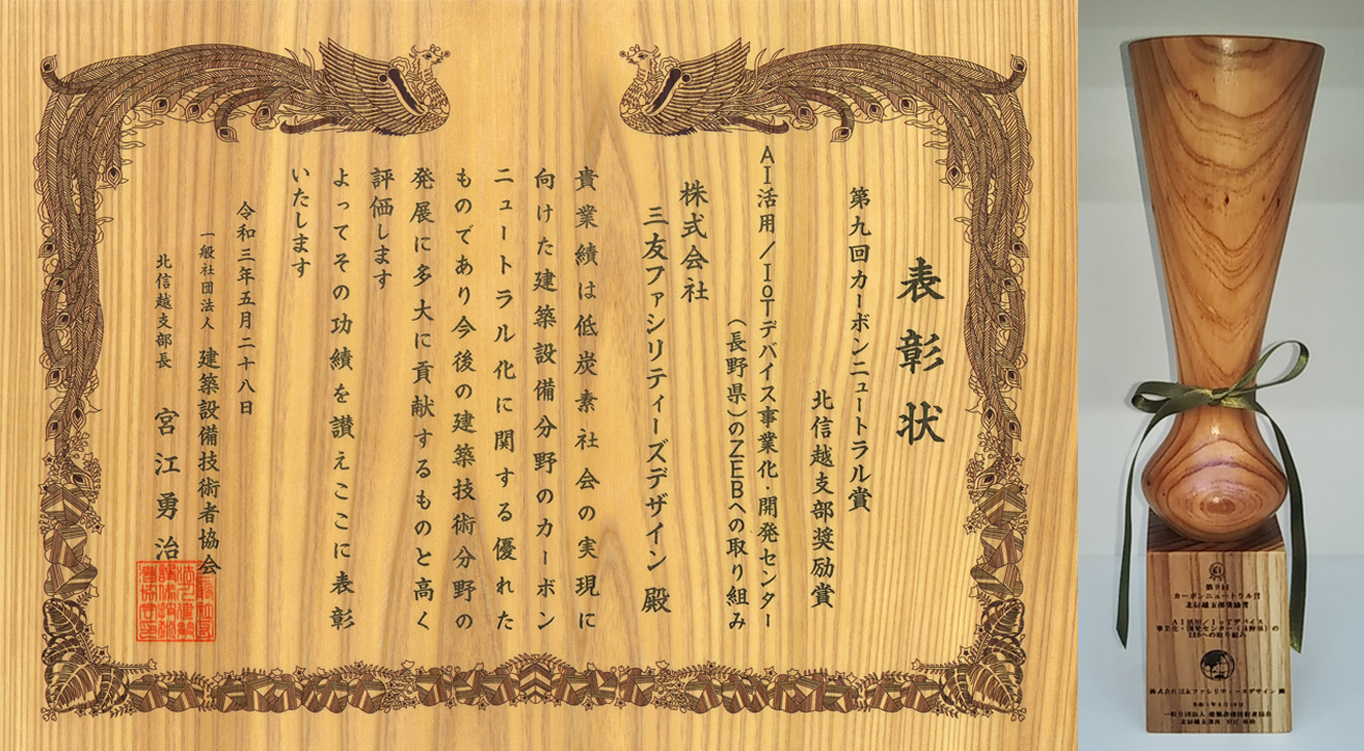 表彰状
第九回カーボンニュートラル賞
北信越支部奨励賞
AI活用/IoTデバイス事業化・開発センター
(長野県)のZEBへの取り組み
株式会社
三友ファシリティーズデザイン 殿
貴業績は低炭素社会の実現に
向けた建築設備分野のカーボン
ニュートラル化に関する優れた
ものであり今後の建築技術分野の
発展に多大に貢献するものと高く
評価します
よってその功績を讃えここに表彰
いたします
令和三年五月二十八日
一般社団法人 建築設備技術者協会
北信越支部長 宮江勇治
第9回
カーボンニュートラル賞
北信越支部奨励賞
AI活用/IoTデバイス
事業化・開発センター(長野県)の
ZEBへの取り組み
株式会社三友ファシリティーズデザイン 殿
令和3年5月28日
一般社団法人 建築設備技術者協会
北信越支部長 宮江 勇治